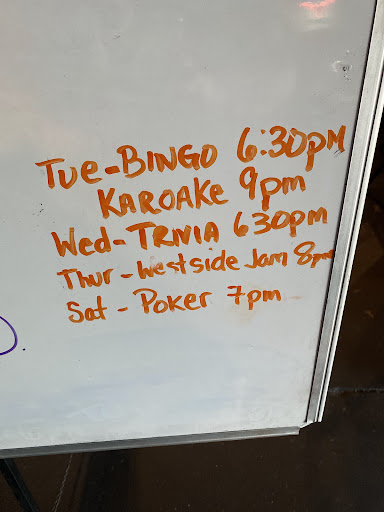 Tue-BINGO 6:30pm
KAROAKE 9pm
Wed-TRIVIA 630pm
Thur - West side Jam 8pm
Sat - POKER 7pm